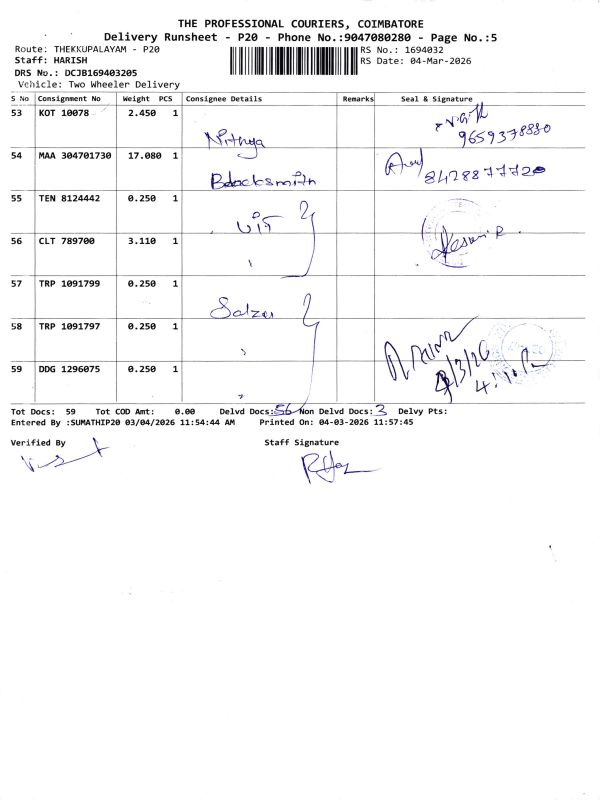 THE PROFESSIONAL COURIERS, COIMBATORE
Delivery Runsheet - P20 - Phone No.:9047080280 - Page No.:5
Route: THEKKUPALAYAM - P20 RS No.: 1694032
Staff: HARISH RS Date: 04-Mar-2026
DRS No.: DCJB169403205
Vehicle: Two Wheeler Delivery
S No Consignment No Weight PCS Consignee Details Remarks Seal & Signature
53 KOT 10078 2.450 1 Nithya 9659378880
54 MAA 304701730 17.080 1 Blacksmith 8428877720
55 TEN 8124442 0.250 1 VIT
56 CLT 789700 3.110 1 "
57 TRP 1091799 0.250 1 Salzer
58 TRP 1091797 0.250 1 "
59 DDG 1296075 0.250 1 "
Tot Docs: 59 Tot COD Amt: 0.00 Delvd Docs: 56 Non Delvd Docs: 3 Delvy Pts:
Entered By :SUMATHIP20 03/04/2026 11:54:44 AM Printed On: 04-03-2026 11:57:45
Verified By Staff Signature